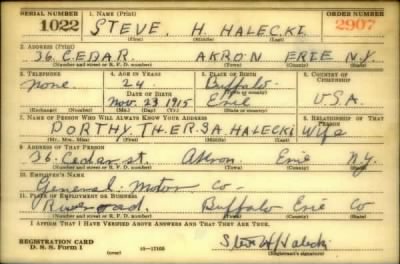 SERIAL NUMBER 1. NAME (Print) ORDER NUMBER
1022 STEVE. H. HALECKI 2907
(First) (Middle) (Last)
2. ADDRESS (Print)
36. CEDAR AKRON ERIE N.Y.
(Number and street or R. F. D. number) (Town) (County) (State)
3. TELEPHONE 4. AGE IN YEARS 5. PLACE OF BIRTH 6. COUNTRY OF CITIZENSHIP
none. 24 Buffalo
DATE OF BIRTH (Town or county)
Nov. 23 1915 Erie U.S.A.
(Exchange) (No.) (Mo.) (Day) (Yr.) (State or country)
7. NAME OF PERSON WHO WILL ALWAYS KNOW YOUR ADDRESS 8. RELATIONSHIP OF THAT PERSON
DORTHY. TH.ERSA. HALECKI Wife
(Mr., Mrs., Miss) (First) (Middle) (Last)
9. ADDRESS OF THAT PERSON
36. Cedar st. Akron. Erie N.Y.
(Number and street or R. F. D. number) (Town) (County) (State)
10. EMPLOYER'S NAME
General. Motor Co-
11. PLACE OF EMPLOYMENT OR BUSINESS
River road. Buffalo Erie Co
(Number and street or R. F. D. number) (Town) (County) (State)
I AFFIRM THAT I HAVE VERIFIED ABOVE ANSWERS AND THAT THEY ARE TRUE.
REGISTRATION CARD
D. S. S. Form 1 16—17105 Steve H Halecki
(over) (Registrant's signature)